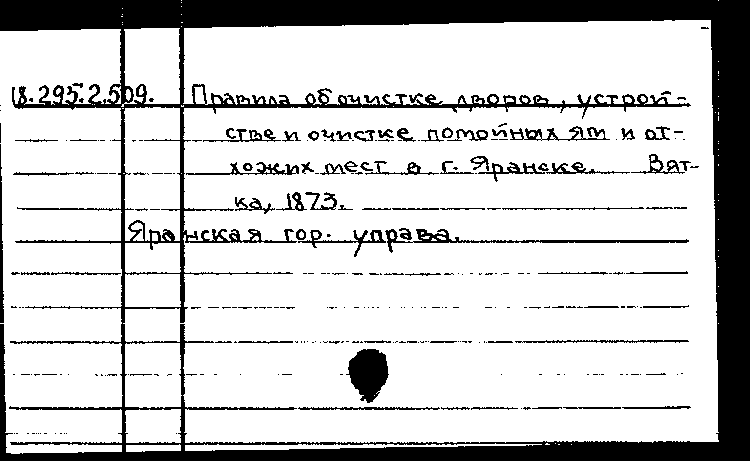 18.295.2.509. Правила об очистке дворов, устрой-
стве и очистке помойных ям и от-
хожих мест в г. Яранске. Вят-
ка, 1873.
Яранская гор. управа.